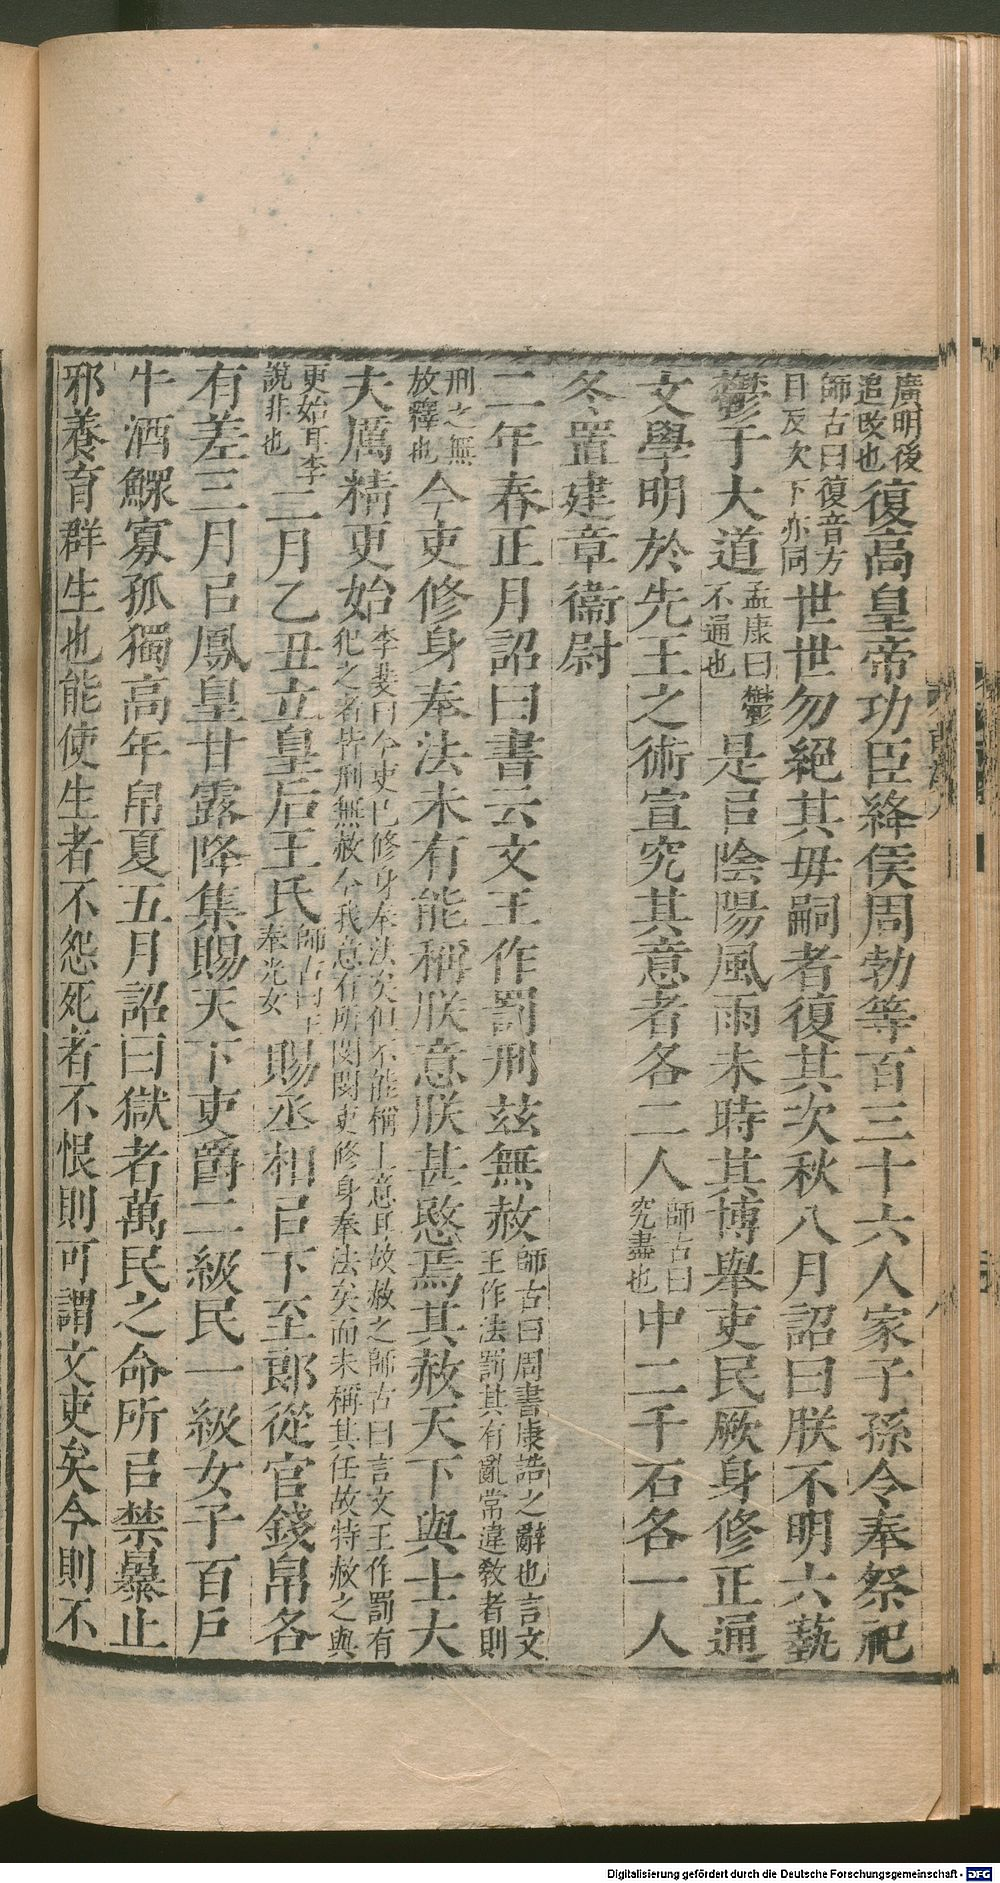 廣明後追改也復高皇帝功臣絳侯周勃等百三十六人家子孫令奉祭祀
師古曰復音方目反次下亦同世世勿絕其毋嗣者復其次秋八月詔曰朕不明六藝
鬱于大道孟康曰鬱不通也是㠯陰陽風雨未時其博舉吏民厥身修正通
文學明於先王之術宣究其意者各二人師古曰究盡也中二千石各一人
冬置建章衞尉
二年春正月詔曰書云文王作罰刑茲無赦師古曰周書康誥之辭也言文王作法罰其有亂常違敎者則
刑之無放釋也今吏修身奉法未有能稱朕意朕甚愍焉其赦天下與士大
夫厲精更始李斐曰今吏已修身奉法矣但不能稱上意耳故赦之師古曰言文王作罰有犯之者皆刑無赦今我意有所閔閔吏修身奉法矣而未稱其任故特赦之與
更始耳李說非也二月乙丑立皇后王氏師古曰王奉光女賜丞相㠯下至郎從官錢帛各
有差三月㠯鳳皇甘露降集賜天下吏爵二級民一級女子百戶
牛酒鰥寡孤獨高年帛夏五月詔曰獄者萬民之命所㠯禁暴止
邪養育群生也能使生者不怨死者不恨則可謂文吏矣今則不
Digitalisierung gefördert durch die Deutsche Forschungsgemeinschaft - DFG